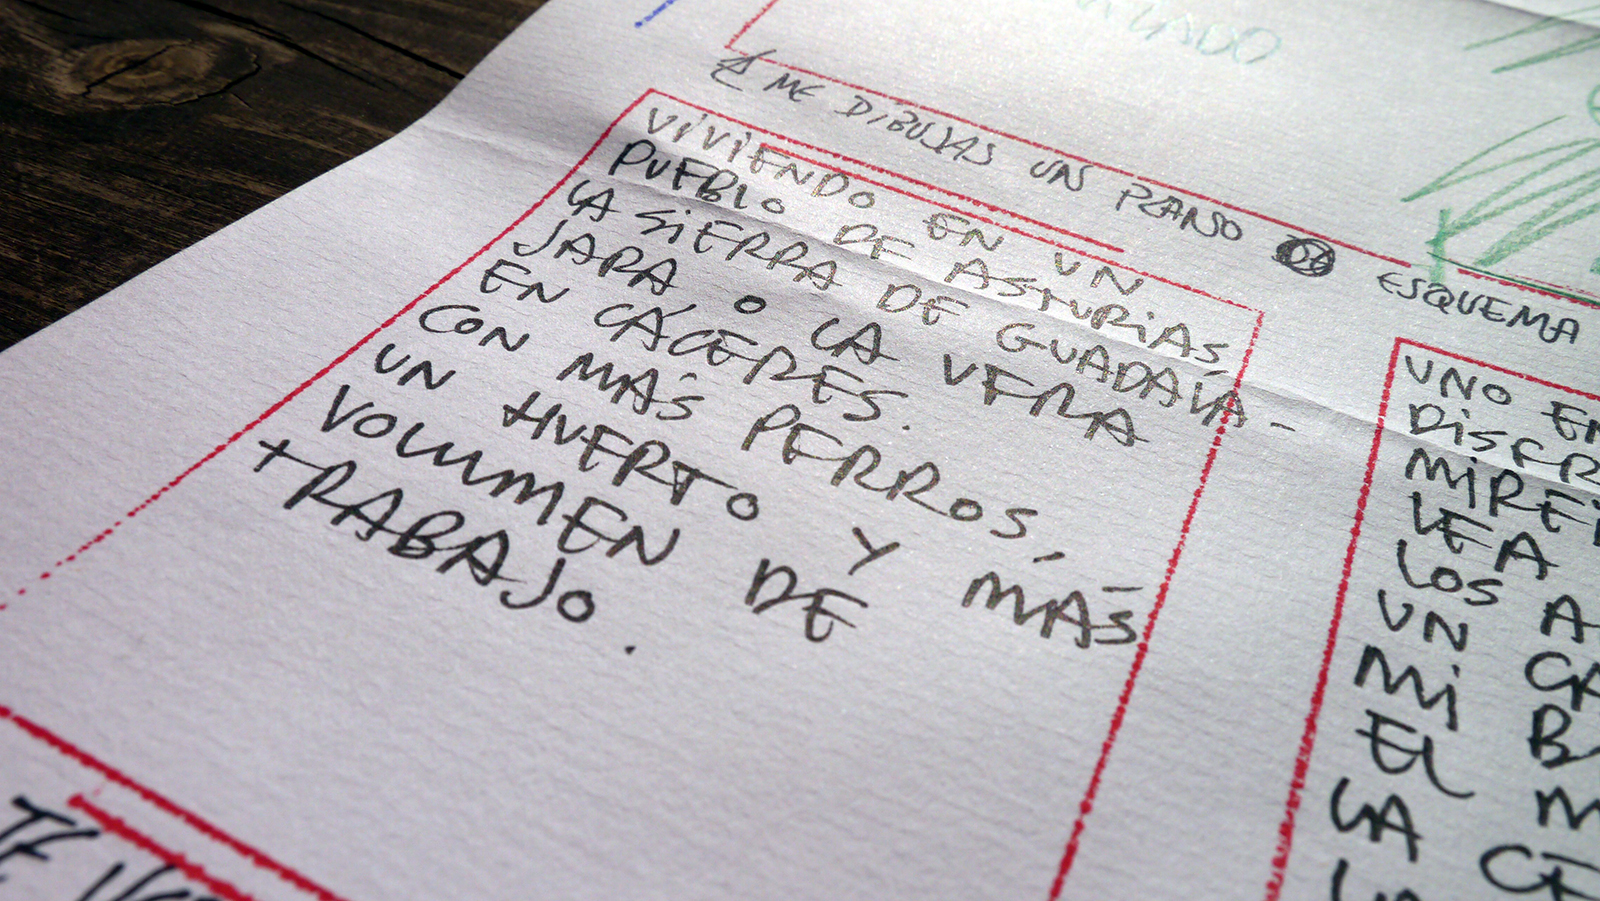 ¿ ME DIBUJAS UN PLANO O ESQUEMA
VIVIENDO EN UN
PUEBLO DE ASTURIAS,
LA SIERRA DE GUADALA-
JARA O LA VERA
EN CÁCERES.
CON MÁS PERROS,
UN HUERTO Y MÁS
VOLUMEN DE
TRABAJO.
UNO EN
MI
EL
LA
LOS
UN
TE